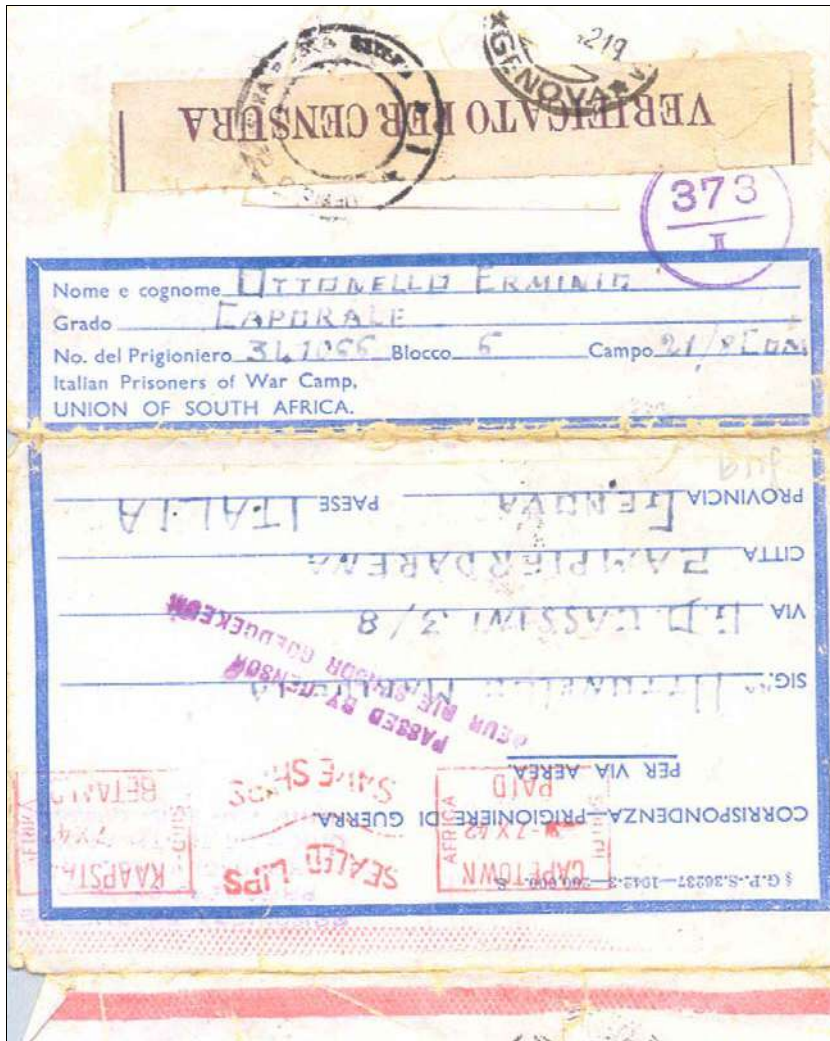 219
GENOVA
VERIFICATO PER CENSURA
373
II
Nome e cognome OTTONELLO ERMINIO
Grado CAPORALE
No. del Prigioniero 341066 Blocco 6 Campo 21/8
Italian Prisoners of War Camp,
UNION OF SOUTH AFRICA.
§ G.P.-S.36237—1942-3—200,000. S.
CORRISPONDENZA-PRIGIONIERE DI GUERRA.
PER VIA AEREA.
CAPETOWN
-7 X 42
AFRICA
PAID
SEALED LIPS
SAVE SHIPS
KAAPSTAD
7 X 42
PASSED BY CENSOR
DEUR DIE SENSOR GOEDGEKEUR
SIG. OTTONELLO
VIA G.D. CASSINI 3/8
CITTA SAMPIERDARENA
PROVINCIA GENOVA PAESE ITALIA